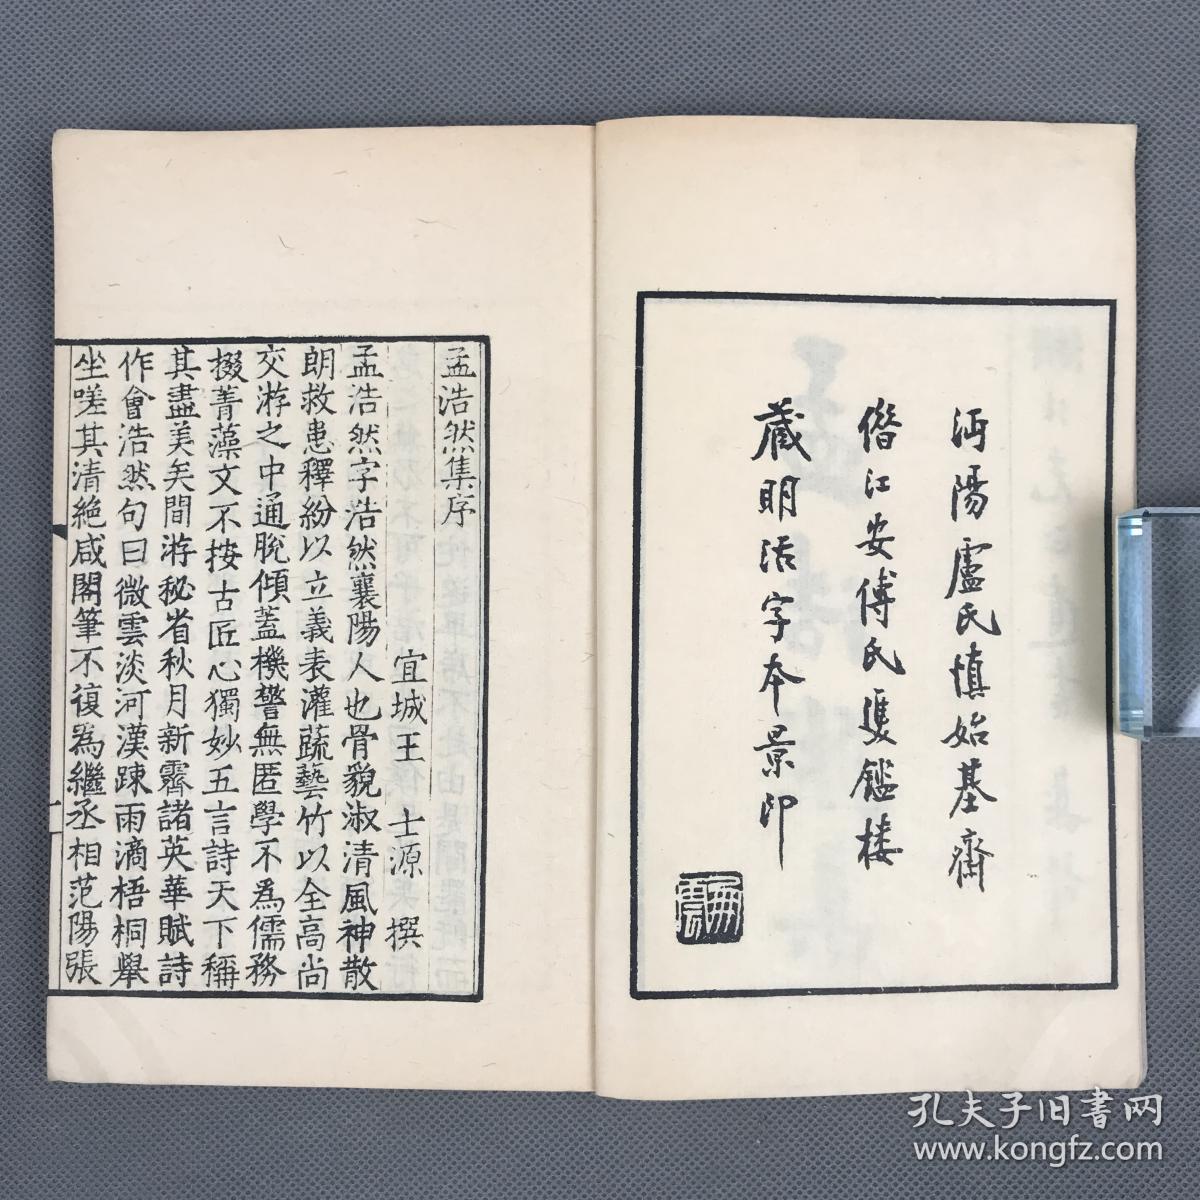 沔陽盧氏慎始基齋
偺江安傅氏雙鑑樓
藏明活字本景印
孟浩然集序
宜城王士源撰
孟浩然字浩然襄陽人也骨貌淑清風神散
朗救患釋紛以立義表灌蔬藝竹以全高尚
交游之中通脫傾蓋機警無匿學不為儒務
掇菁藻文不按古匠心獨妙五言詩天下稱
其盡美矣間游秘省秋月新霽諸英華賦詩
作會浩然句曰微雲淡河漢踈雨滴梧桐舉
坐嗟其清絶咸閣筆不復為繼丞相范陽張
孔夫子旧书网
www.kongfz.com